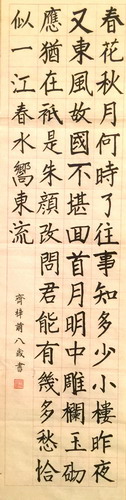 春花秋月何時了往事知多少小樓昨夜
又東風故國不堪回首月明中雕欄玉砌
應猶在祇是朱顏改問君能有幾多愁恰
似一江春水嚮東流
齊梓萌八歲書